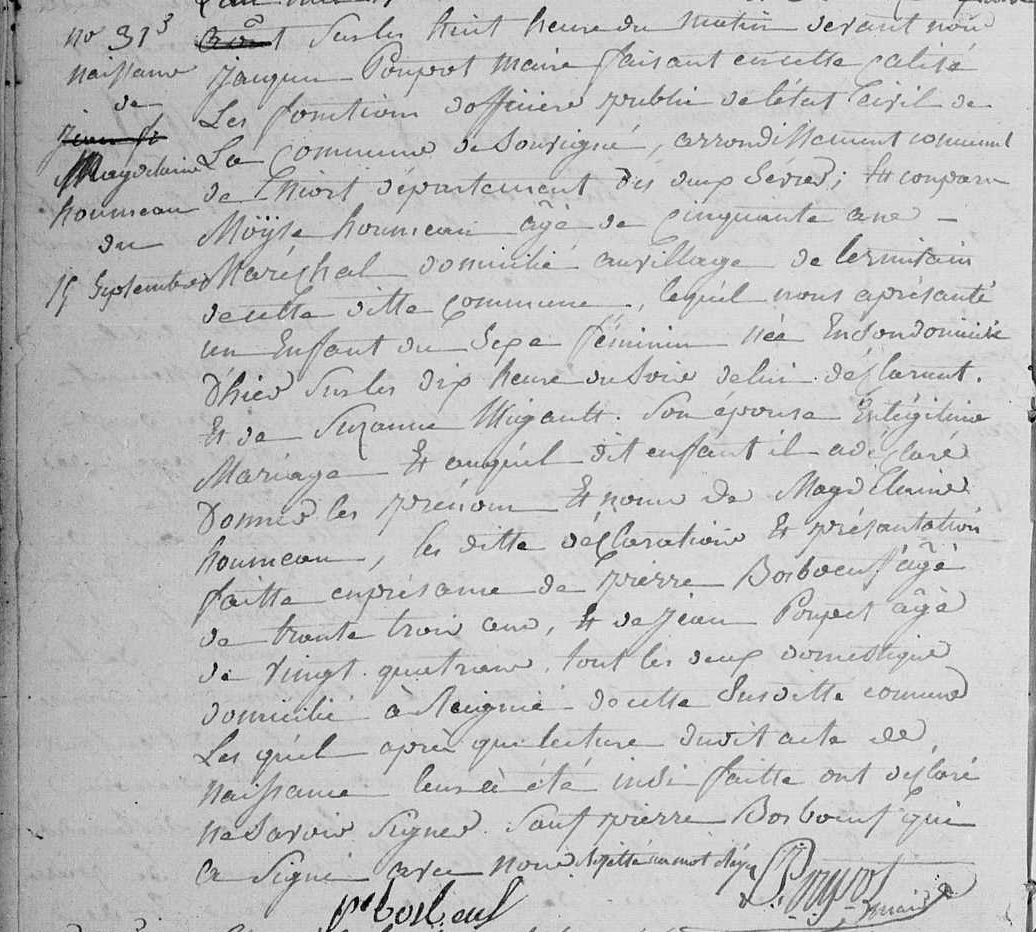 no 31
naissance
de
Magdelaine
houmeau
du
15 Septembre
sur les huit heure du matin devant nous
jacques Poupot maire faisant en cette calité
Les fonctions dofficiere public de létat Civil de
La Commune de Souvigné, arrondissement communal
de Thiort département des deux Sévres; Est comparu
Möyse houmeau âgé de Cinquante ans
Maréchal domicilié au village de lermitain
de cette ditte Commune, lequel nous aprésanté
un Enfant du Sexe féminin née En Son domicile
D'hier sur les dix heure du Soire de lui déclarant.
Et de Suzanne Migault. Son épouse En légitime
Mariage Et auquél dit enfant il a déclaré
Donner les prénom Et nom de Magdelaine
houmeau, les ditte déclaration Et présantation
faitte en présance de pierre Bosboeuf âgé
de trante trois ans, Et de Jean Poupot âgé
de vingt quatre ans. tout les deux domestique
domicilié à de cette Susditte comune
Les quél après que lecture dudit acte de
naissance leur à été faitte ont déclaré
ne Savoir Signer. Sauf pierre Bosboeuf qui
a Signé avec nous un mot
Poupot
maire
pe bosbeuf